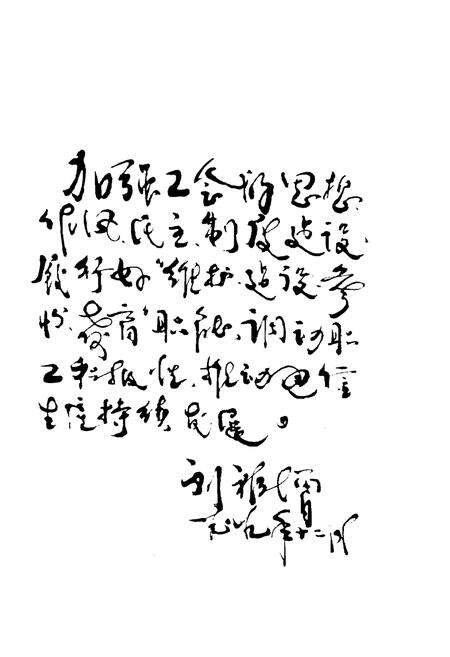 加强工会的思想、
作风、民主、制度建设，
履行好“维护、建设、参
与、教育”职能，调动职
工积极性，推动电信
生产持续发展。
刘
一九八九年十二月